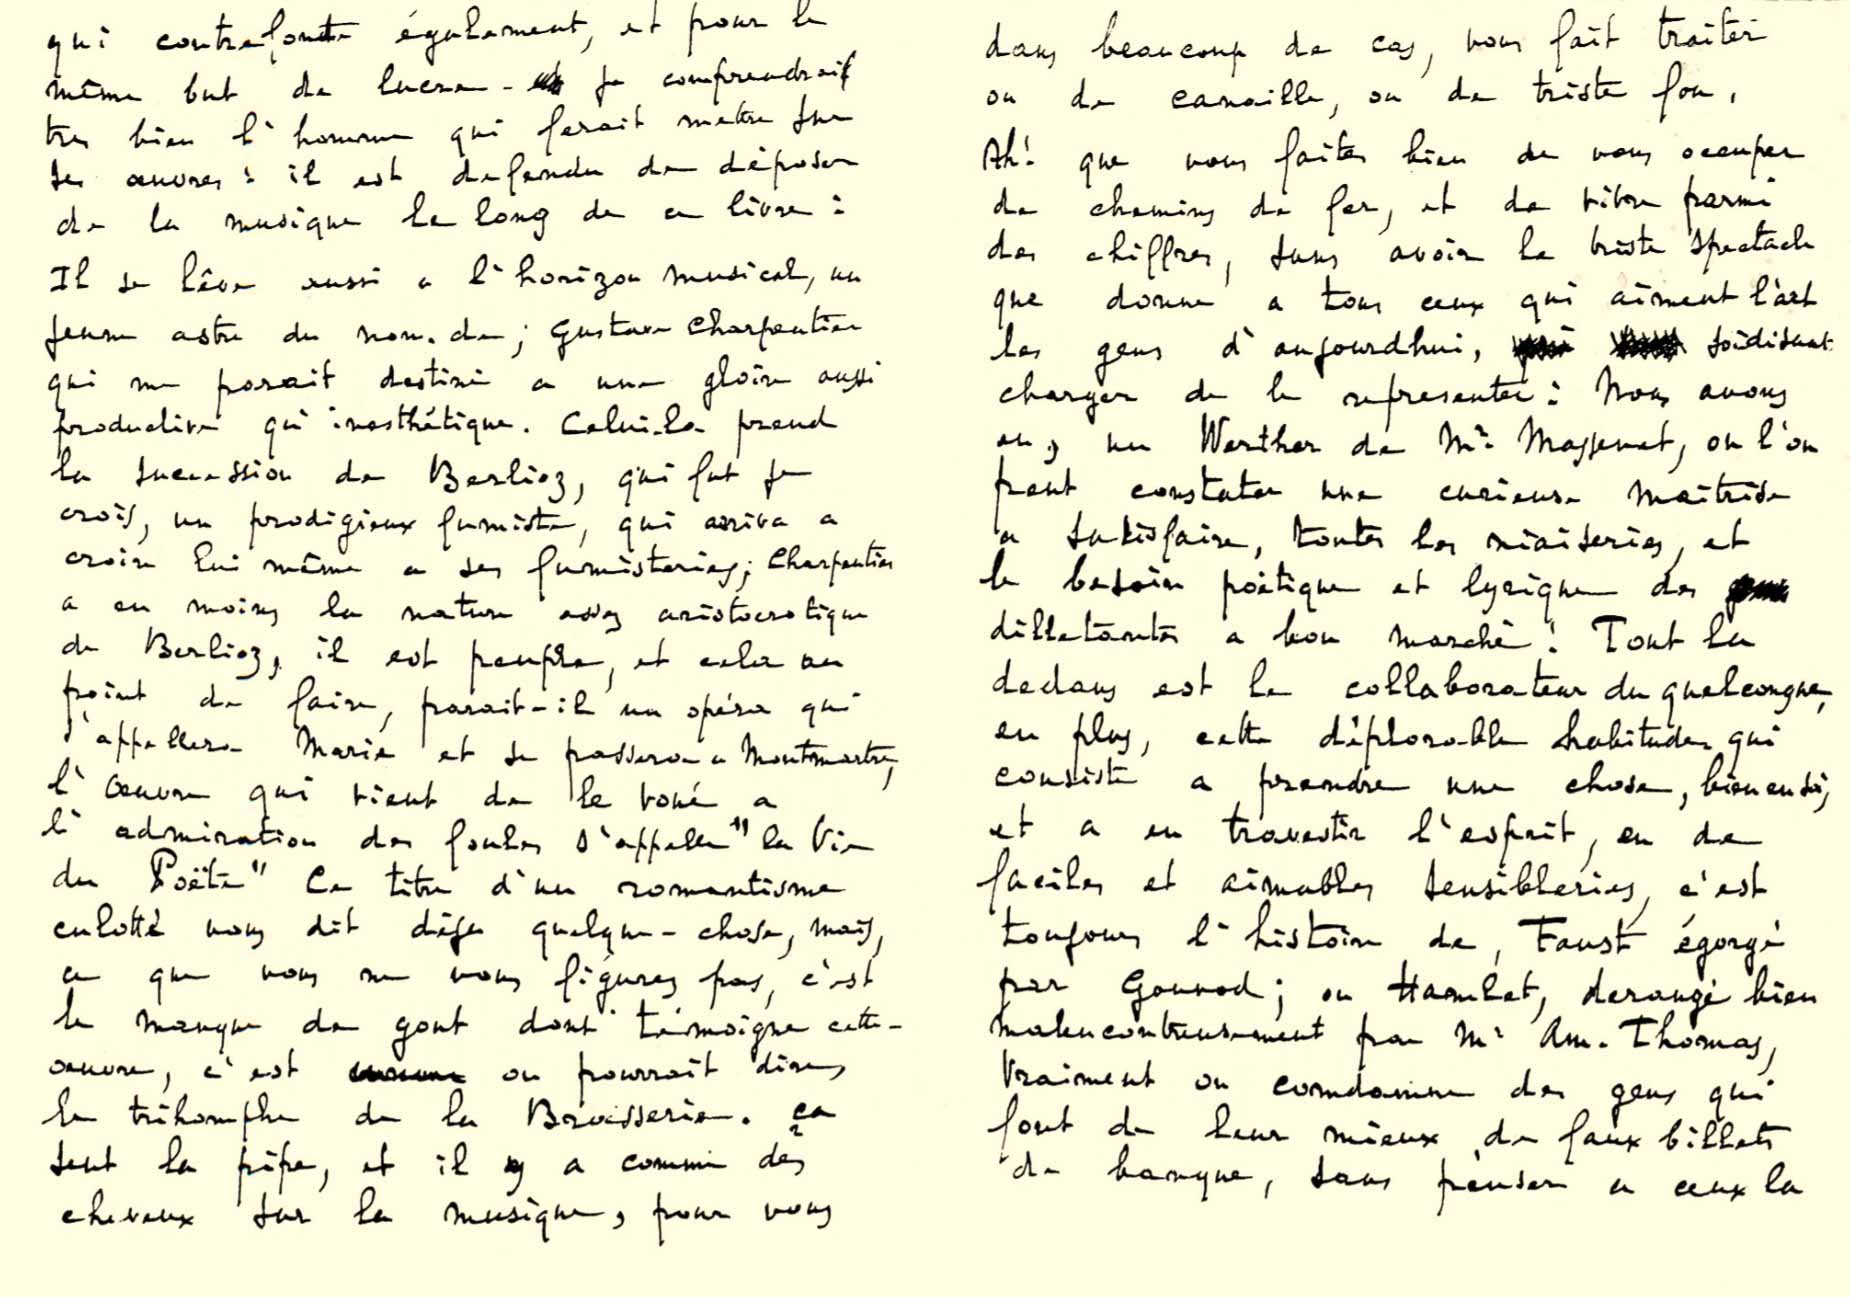 qui contrefonte également, et pour le
même but de lucre - je comprendrais
tres bien l'homme qui ferait mettre sur
ses œuvres : il est defendu de déposer
de la musique le long de ce livre :
Il se lève aussi a l'horizon musical, un
jeune astre du nom. de ; Gustave Charpentier
qui me parait destiné a une gloire aussi
productive qu'inesthétique. Celui-la prend
la succession de Berlioz, qui fut je
crois, un prodigieux fumiste, qui arriva a
croire lui même a ses fumisteries; Charpentier
a en moins la nature assez aristocratique
de Berlioz, il est peuple, et cela au
point de faire, parait-il un opéra qui
s'appellera Marie et se passera a Montmartre,
l'œuvre qui vient de le voué a
l'admiration des foules s'appelle "la Vie
du Poëte" Ce titre d'un romantisme
culotté nous dit déja quelque-chose, mais,
ce que vous ne vous figurez pas, c'est
le manque de gout dont témoigne cette-
œuvre, c'est on pourrait dire,
le trihomphe de la Brasserie. ça
sent la pipe, et il y a comme des
cheveux sur la musique, pour vous
dans beaucoup de cas, vous fait traiter
ou de canaille, ou de triste fou,
Ah! que vous faites bien de vous occuper
de chemins de fer, et de vivre parmi
des chiffres, sans avoir le triste spectacle
que donne a tous ceux qui aiment l'art
les gens d'aujourdhui, soidisant
charger de le representer : Nous avons
eu, un Werther de Mr Massenet, ou l'on
peut constater une curieuse maitrise
a satisfaire, toutes les niaiseries, et
le besoin poétique et lyrique des
dilletantes a bon marché ! Tout la
dedans est le collaborateur du quelconque,
en plus, cette déplorable habitude, qui
consiste a prendre une chose, bien en soi,
et a en travestir l'esprit, en de
faciles et aimables sensibleries, c'est
toujours l'histoire de, Faust égorgé
par Gounod ; ou Hamlet, derangé bien
malencontreusement par Mr Am. Thomas,
Vraiment on comdamne des gens qui
font de leur mieux de faux billets
de banque, sans penser a ceux la